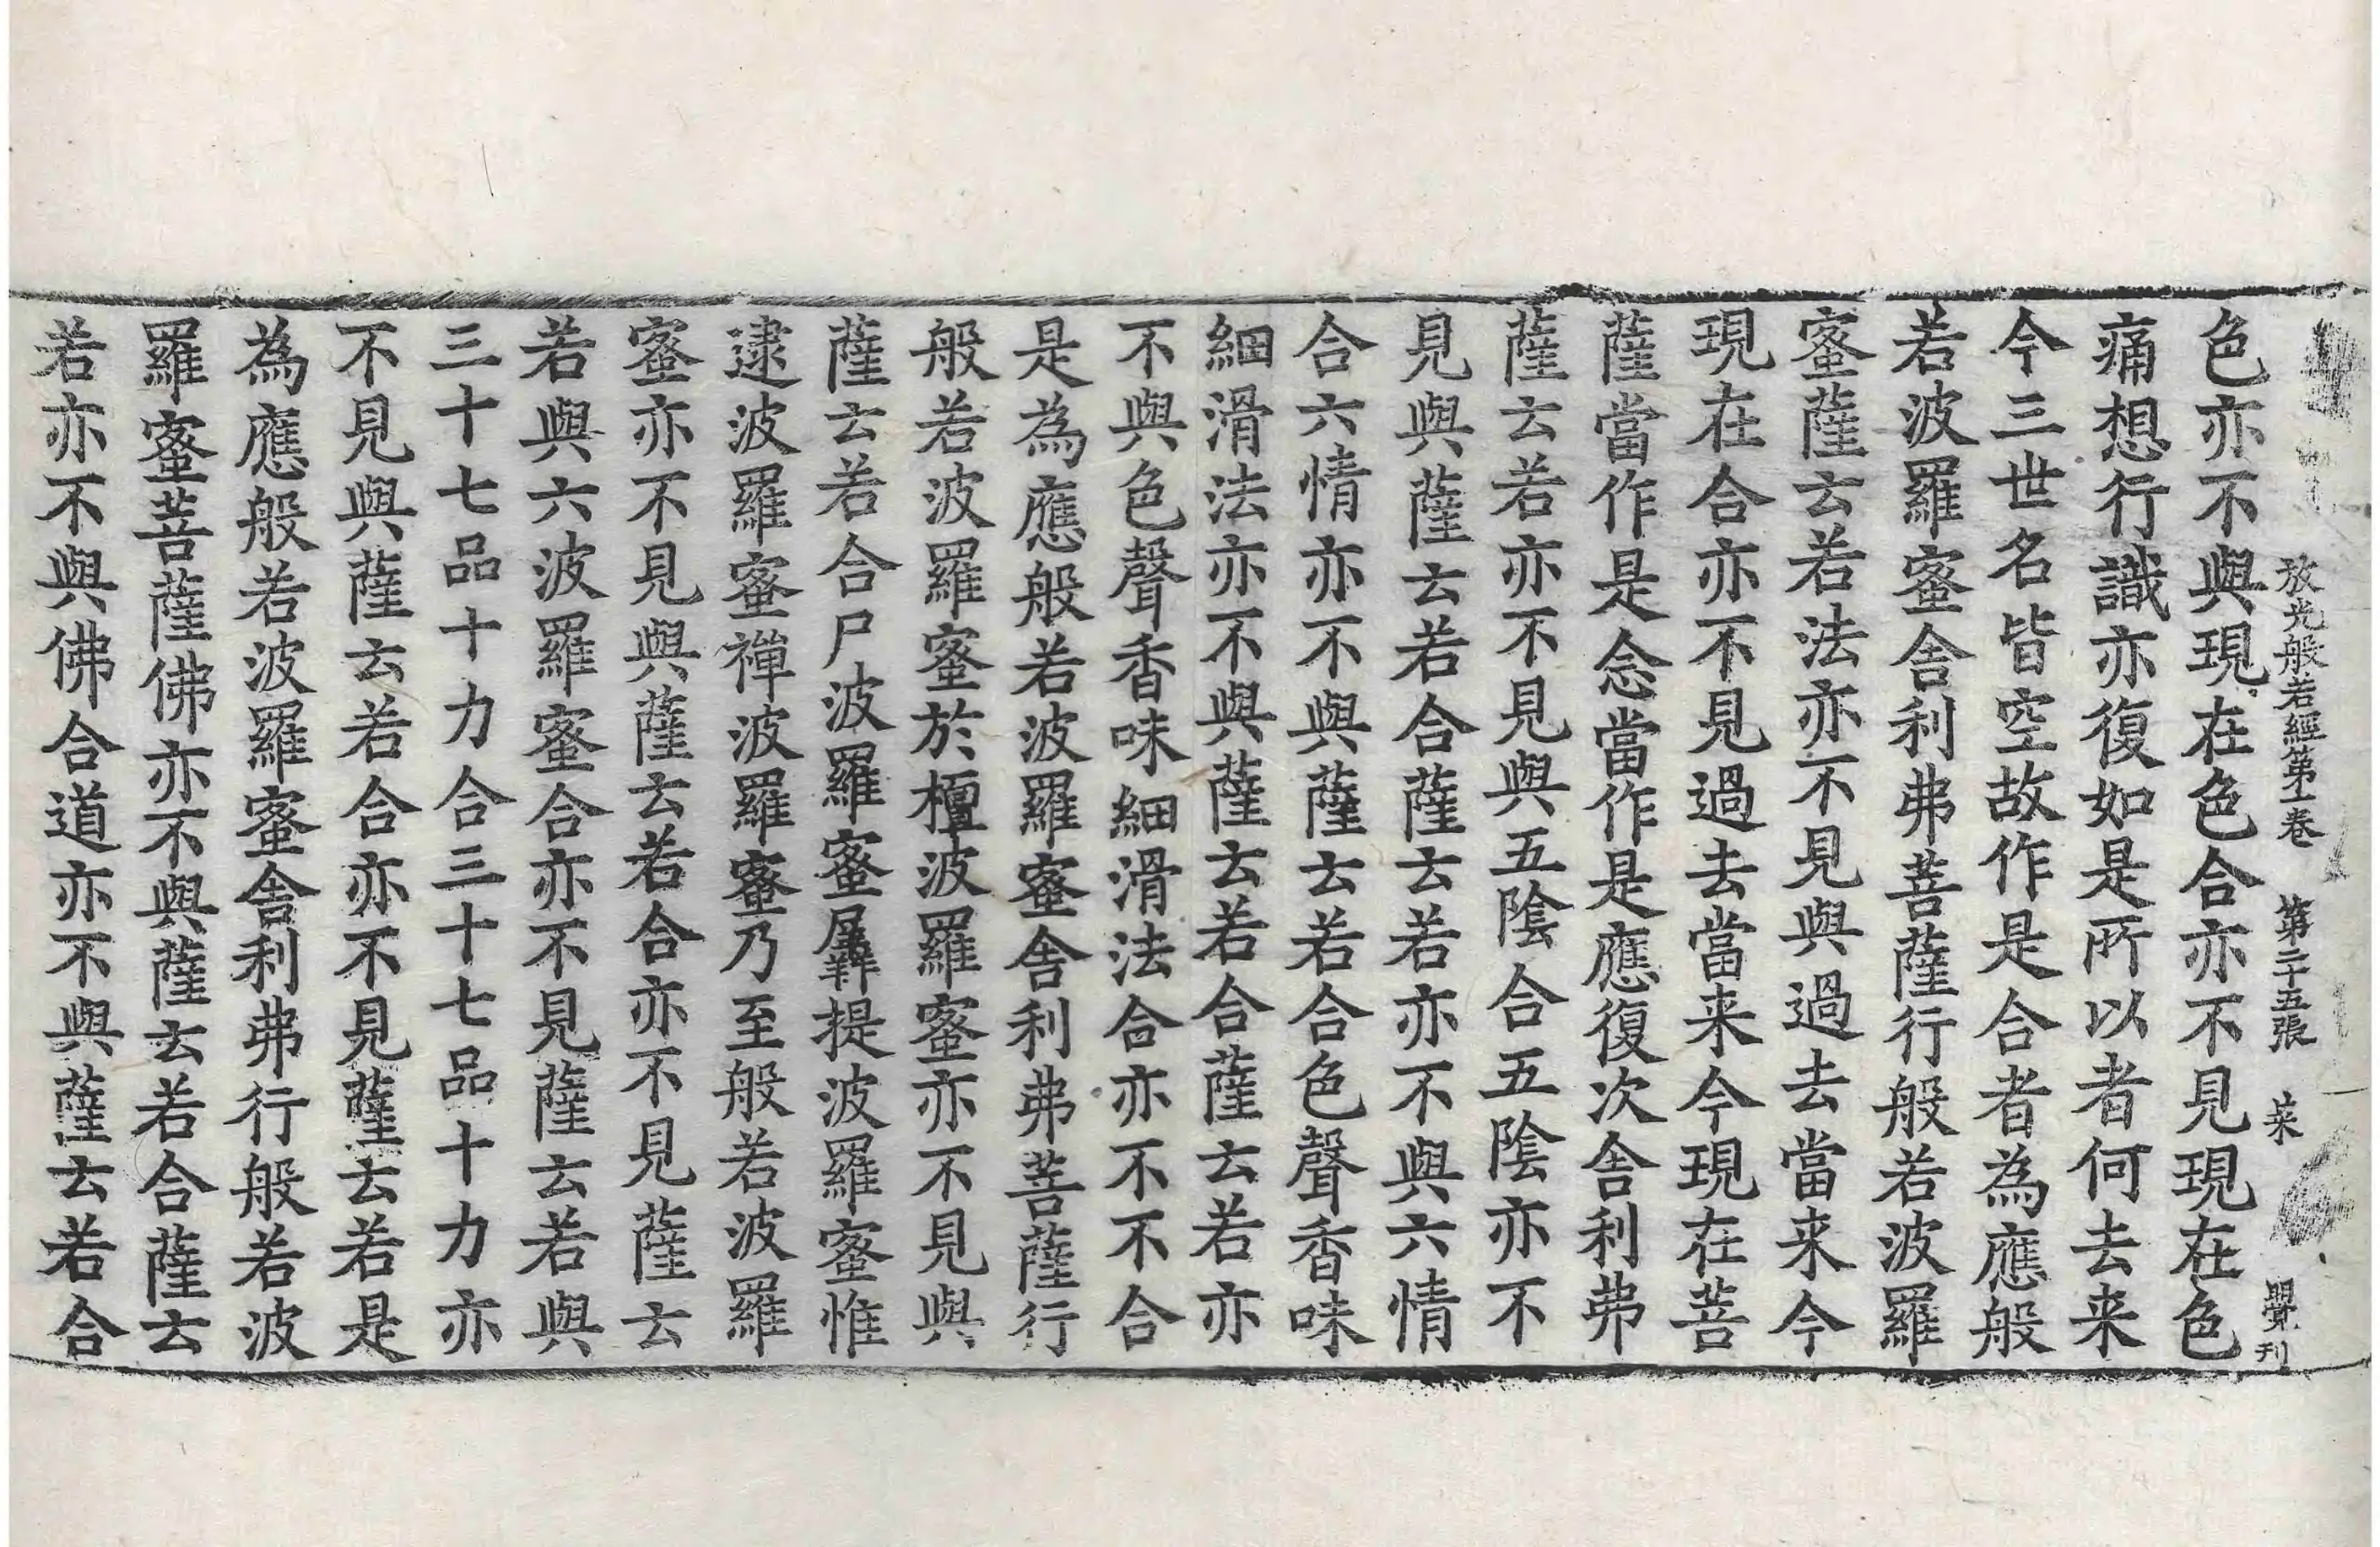 放光般若經第一卷　第二十五張　菜　盟覺刊
色亦不與現在色合亦不見現在色
痛想行識亦復如是所以者何去来
今三世名皆空故作是合者為應般
若波羅蜜舎利弗菩薩行般若波羅
蜜薩云若法亦不見與過去當来今
現在合亦不見過去當来今現在菩
薩當作是念當作是應復次舎利弗
薩云若亦不見與五陰合五陰亦不
見與薩云若合薩云若亦不與六情
合六情亦不與薩云若合色聲香味
細滑法亦不與薩云若合薩云若亦
不與色聲香味細滑法合亦不不合
是為應般若波羅蜜舎利弗菩薩行
般若波羅蜜於檀波羅蜜亦不見與
薩云若合尸波羅蜜羼提波羅蜜惟
逮波羅蜜禪波羅蜜乃至般若波羅
蜜亦不見與薩云若合亦不見薩云
若與六波羅蜜合亦不見薩云若與
三十七品十力合三十七品十力亦
不見與薩云若合亦不見薩云若是
為應般若波羅蜜舎利弗行般若波
羅蜜菩薩佛亦不與薩云若合薩云
若亦不與佛合道亦不與薩云若合